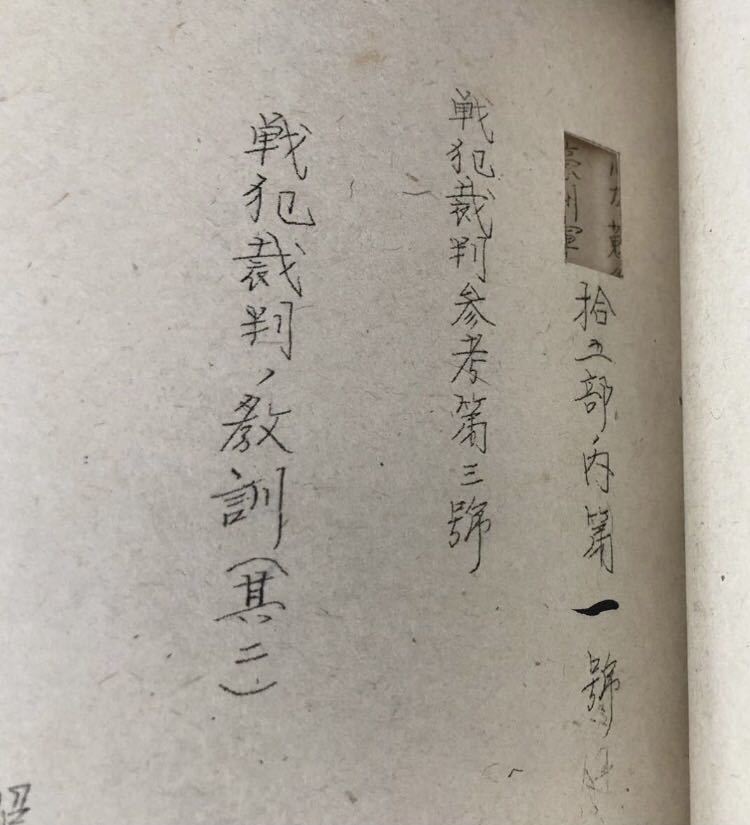 拾五部ノ内第一號
戦犯裁判参考第三號
戦犯裁判ノ教訓(其二)